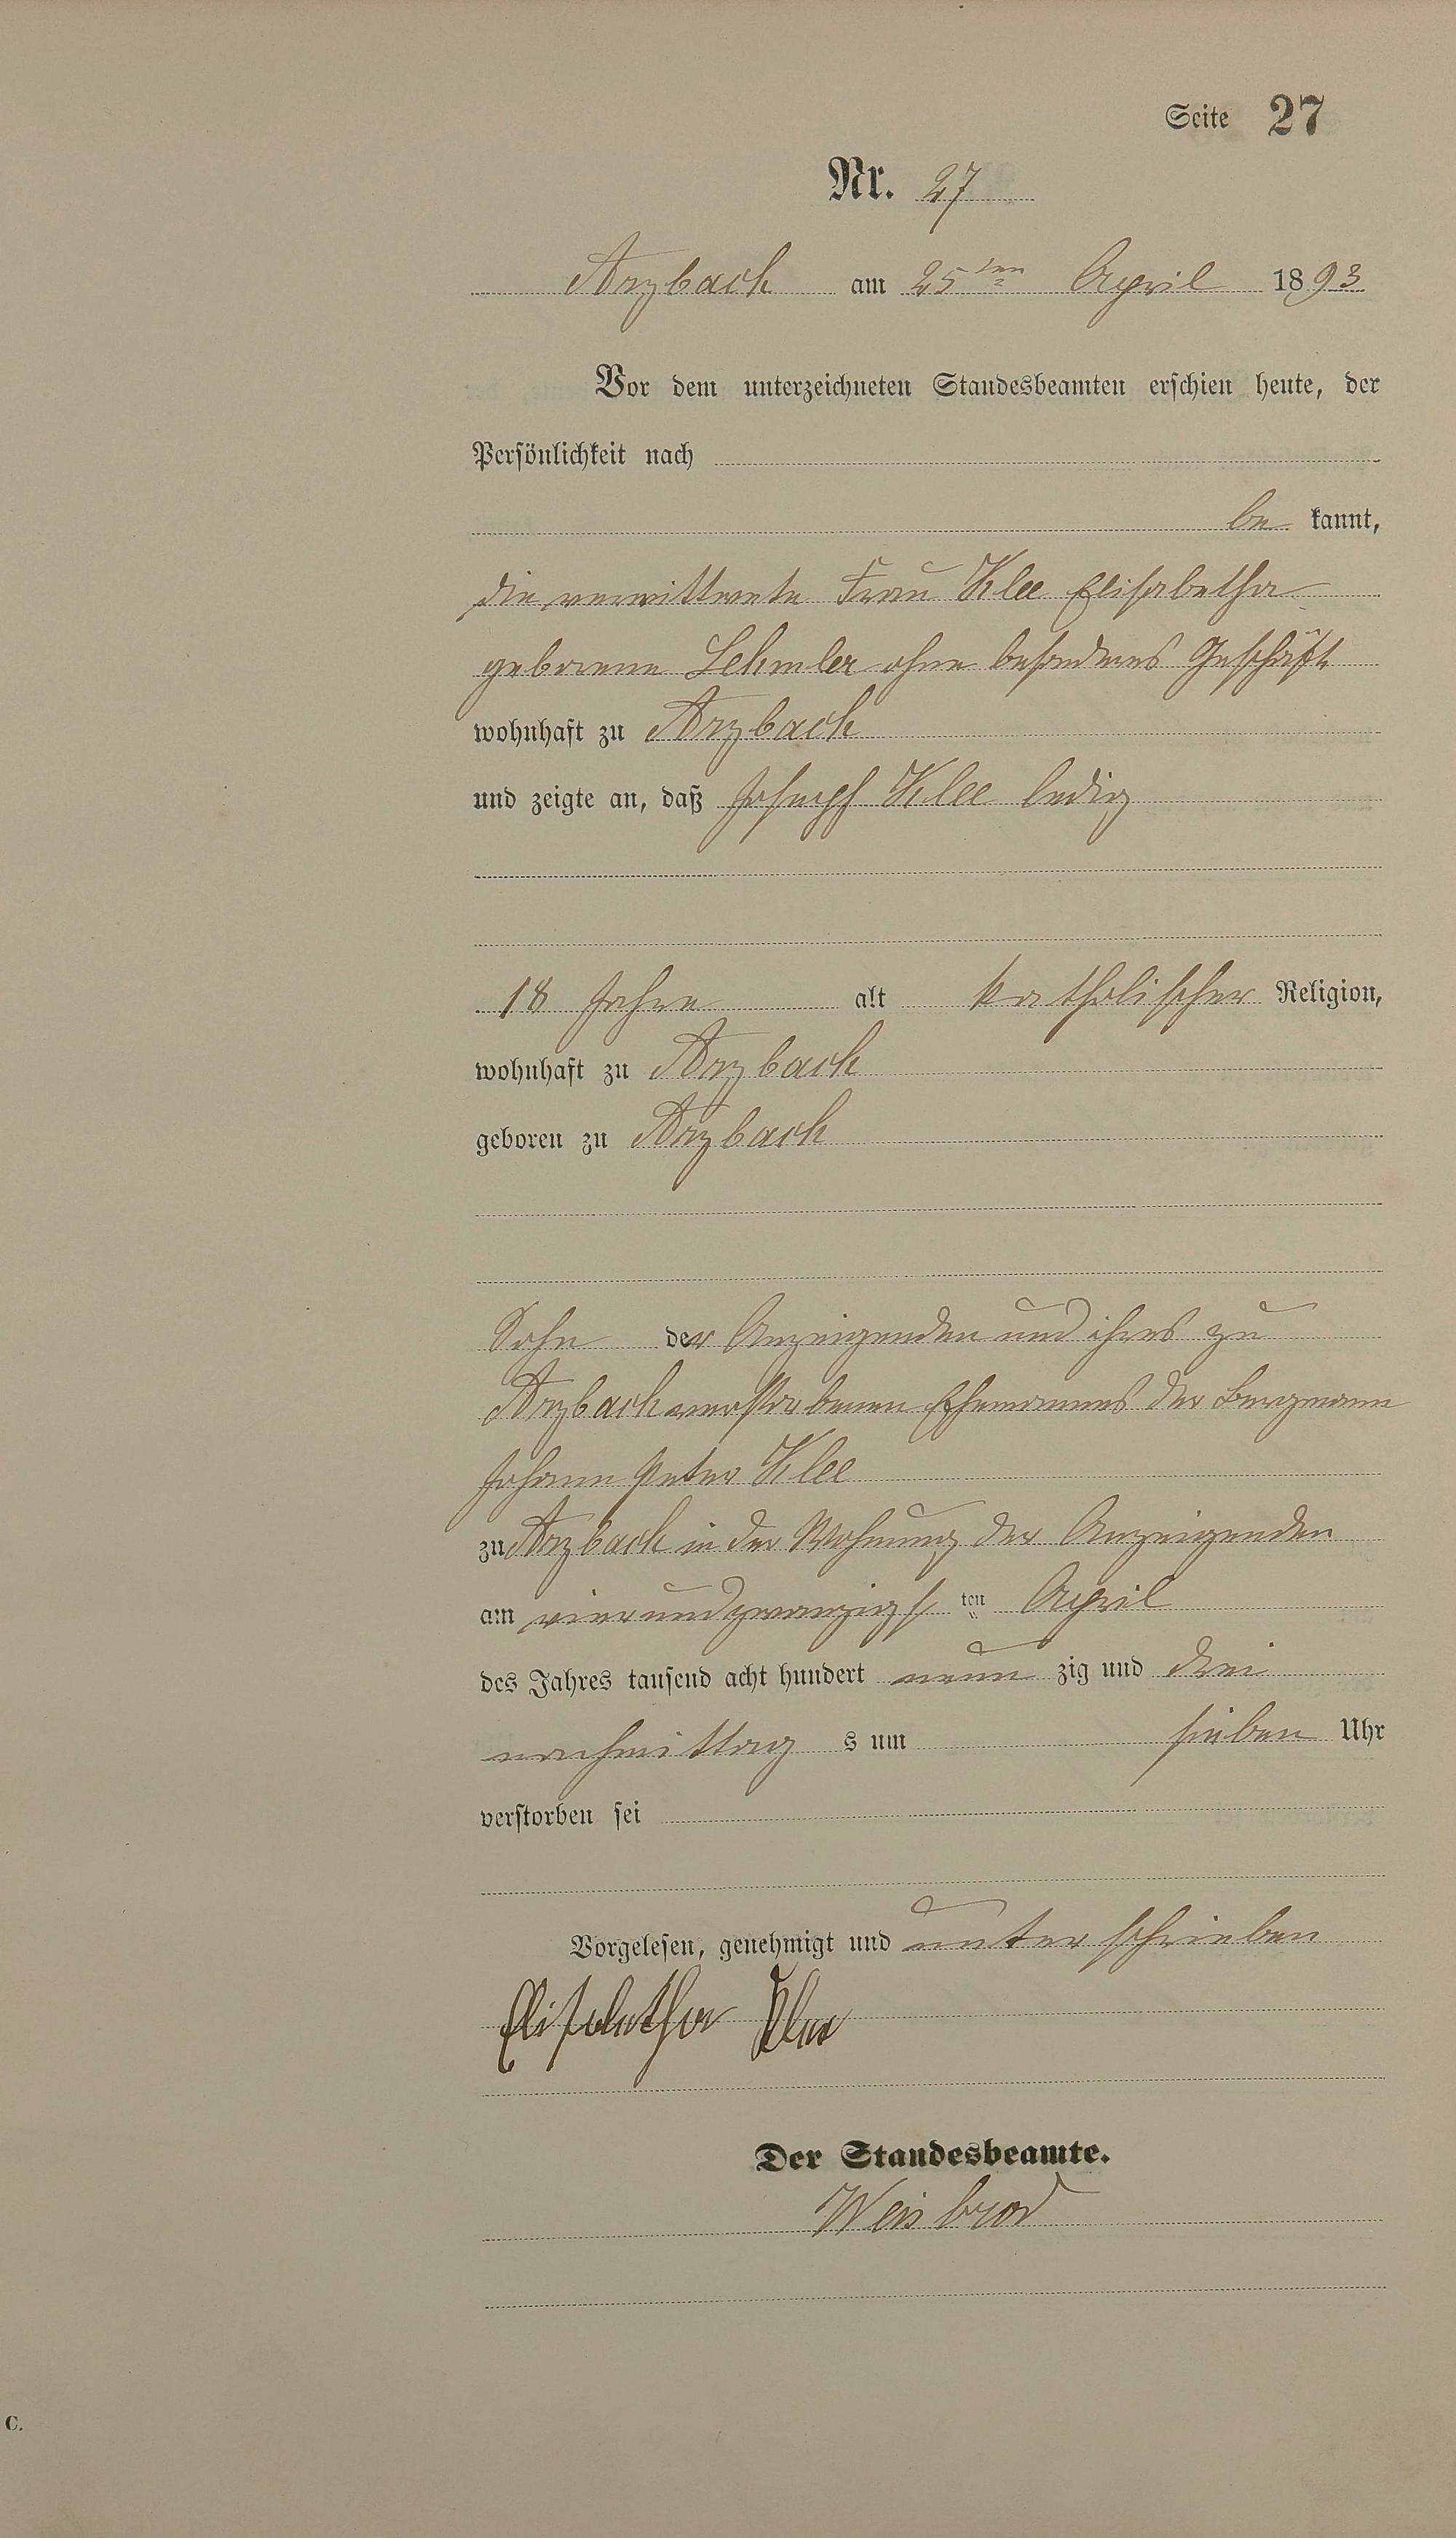 Seite 27
Nr. 27
Arzbach am 25ten April 1893
Vor dem unterzeichneten Standesbeamten erschien heute, der
Persönlichkeit nach
be kannt,
die verwittwete Frau Klee Elisabetha
geborene Lehmler ohne besonderes Geschäft
wohnhaft zu Arzbach
und zeigte an, daß Joseph Klee ledig
18 Jahre alt katholischer Religion,
wohnhaft zu Arzbach
geboren zu Arzbach
Sohn der Anzeigenden und ihres zu
Arzbach verstorbenen Ehemannes der Bergmann
Johann Peter Klee
zu Arzbach in der Wohnung der Anzeigenden
am vierundzwanzigsten April
des Jahres tausend acht hundert neun zig und drei
nachmittag s um sieben Uhr
verstorben sei
Vorgelesen, genehmigt und unterschrieben
Elisabetha Klee
Der Standesbeamte.
Weisbrod
C.